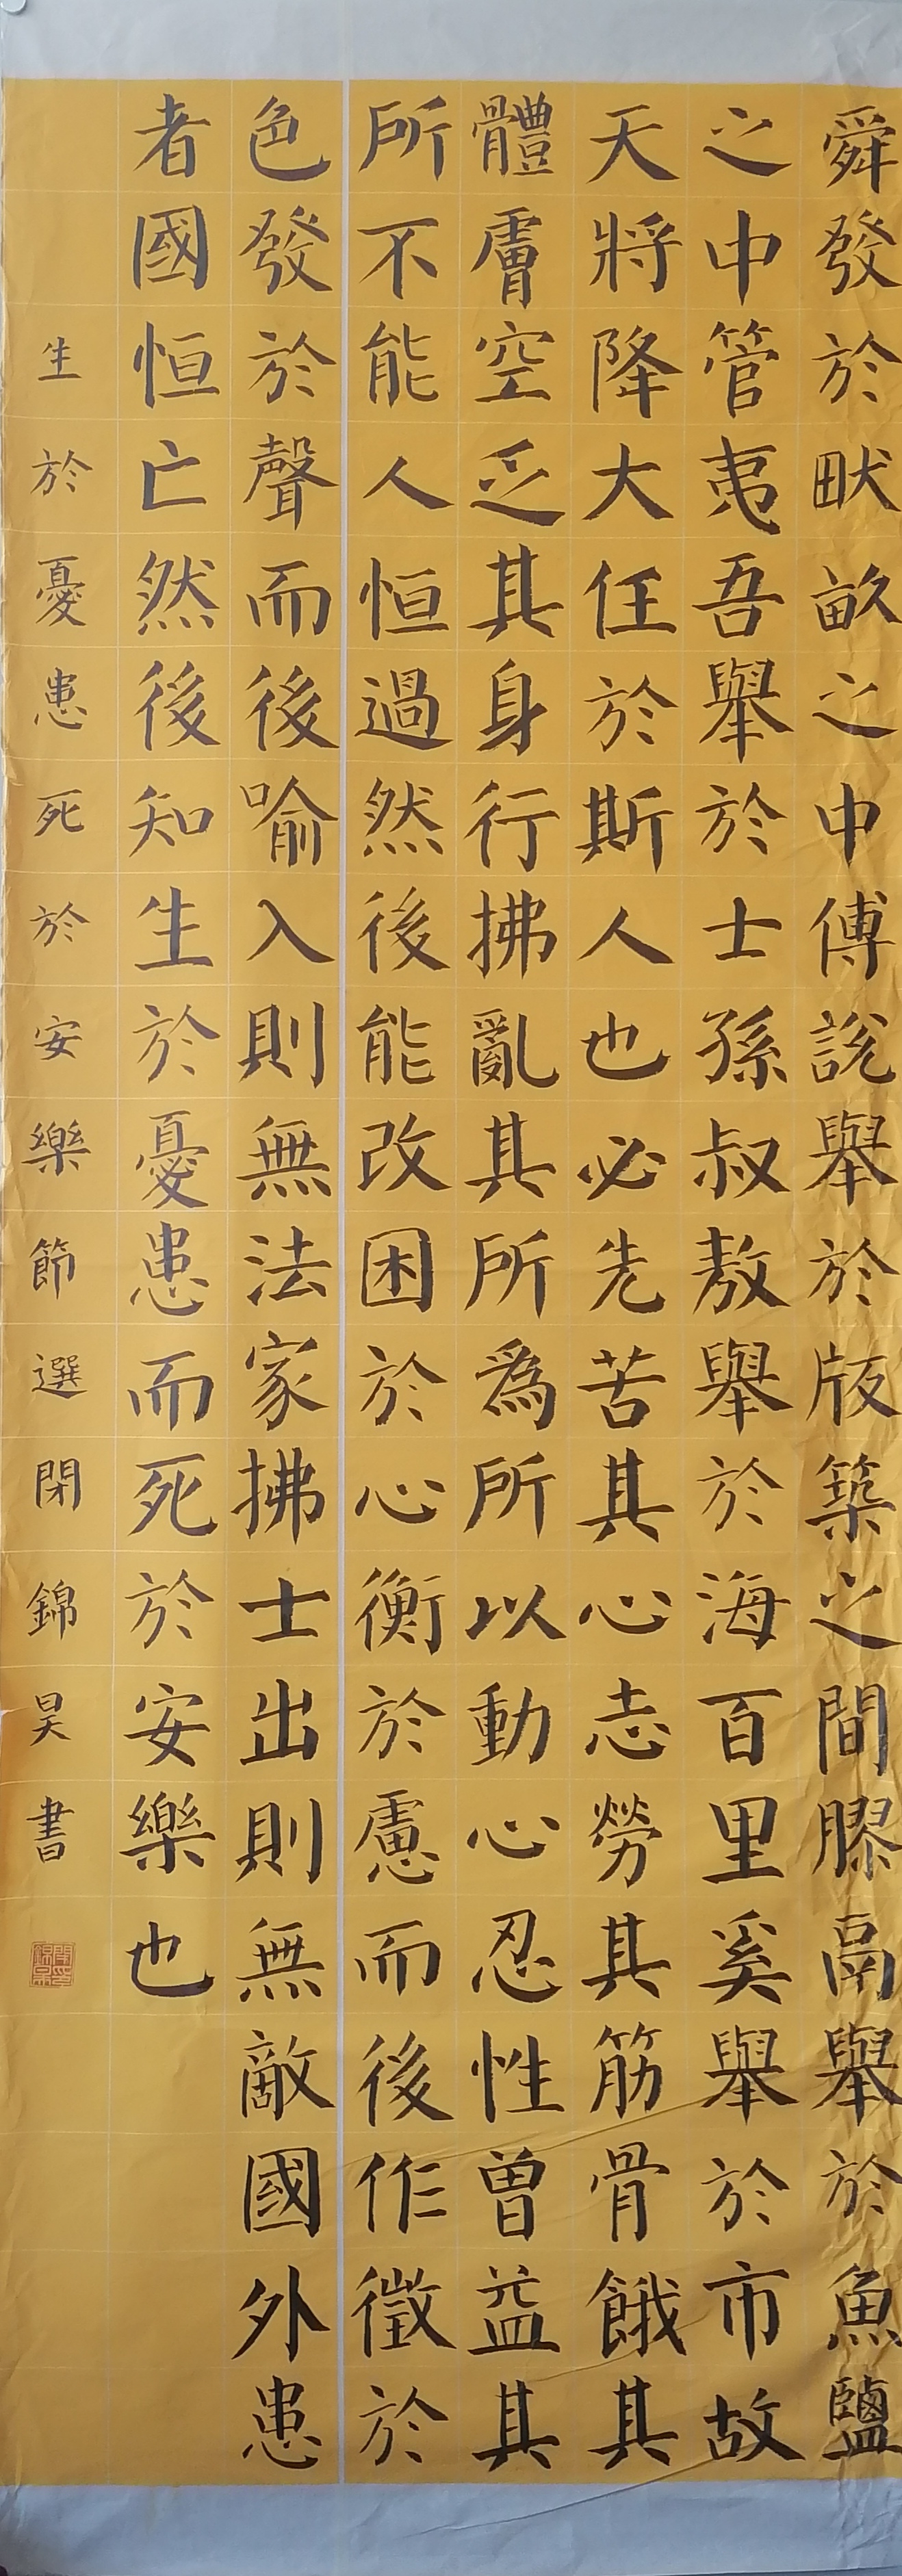 舜發於畎畝之中傅說舉於版築之間膠鬲舉於魚鹽
之中管夷吾舉於士孫叔敖舉於海百里奚舉於市故
天將降大任於斯人也必先苦其心志勞其筋骨餓其
體膚空乏其身行拂亂其所為所以動心忍性曾益其
所不能人恒過然後能改困於心衡於慮而後作徵於
色發於聲而後喻入則無法家拂士出則無敵國外患
者國恒亡然後知生於憂患而死於安樂也
生於憂患死於安樂節選閉錦昊書